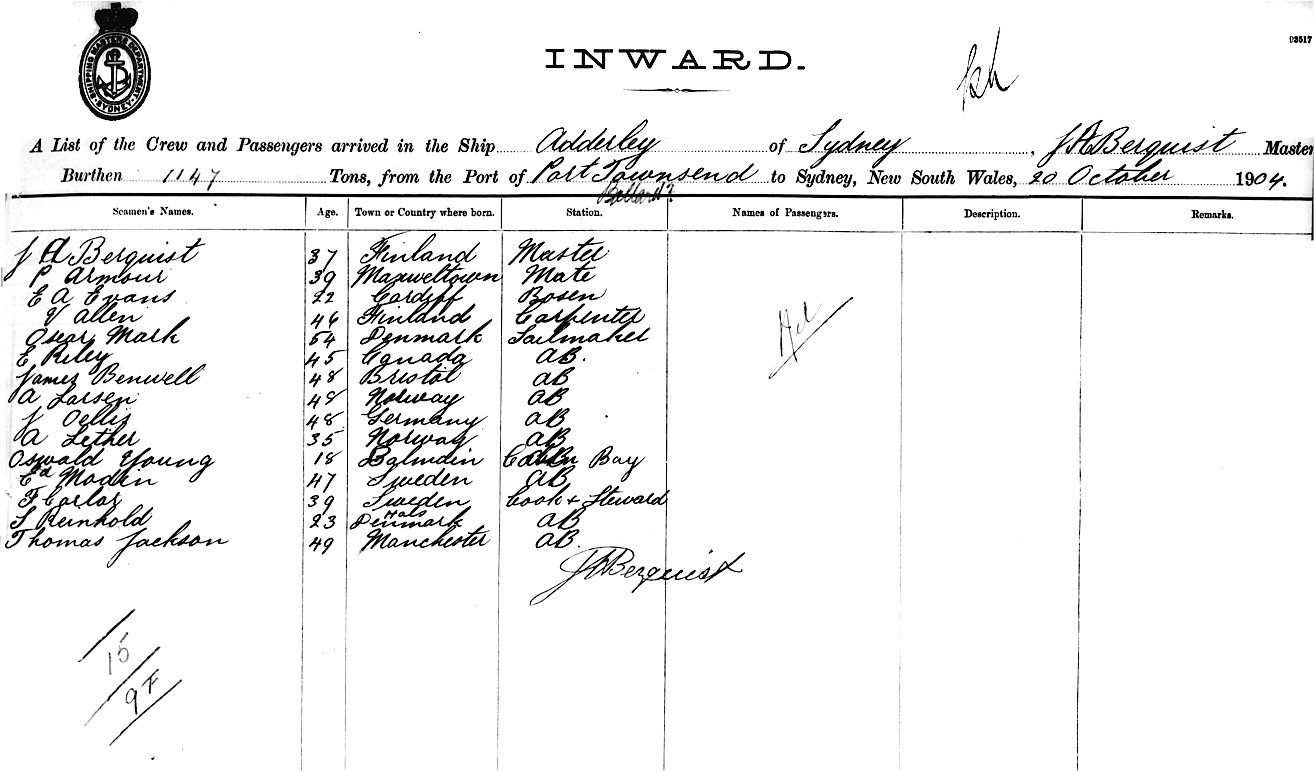 93517
SHIPPING MASTER'S DEPARTMENT SYDNEY
INWARD.
A List of the Crew and Passengers arrived in the Ship Adderley of Sydney, J A Berquist Master
Burthen 1147 Tons, from the Port of Port Townsend to Sydney, New South Wales, 20 October 1904.
Ballard?
Seamen's Names. Age. Town or Country where born. Station. Names of Passengers. Description. Remarks.
J A Berquist 37 Finland Master
P Armour 39 Maxweltown Mate
E A Evans 22 Cardiff Bosen
V Allen 46 Finland Carpenter
Oscar Mark 54 Denmark Sailmaker
E Riley 45 Canada AB.
James Benwell 48 Bristol AB
A Larsen 48 Norway AB
J Oellis 48 Germany AB
A Lether 35 Norway AB
Oswald Young 18 Balmain Cabin Bay
Ed Modin 47 Sweden AB
F Carlar 39 Sweden Cook & Steward
S Reinhold 23 Denmark AB
Thomas Jackson 49 Manchester AB.
J A Berquist
Nil
15
9F